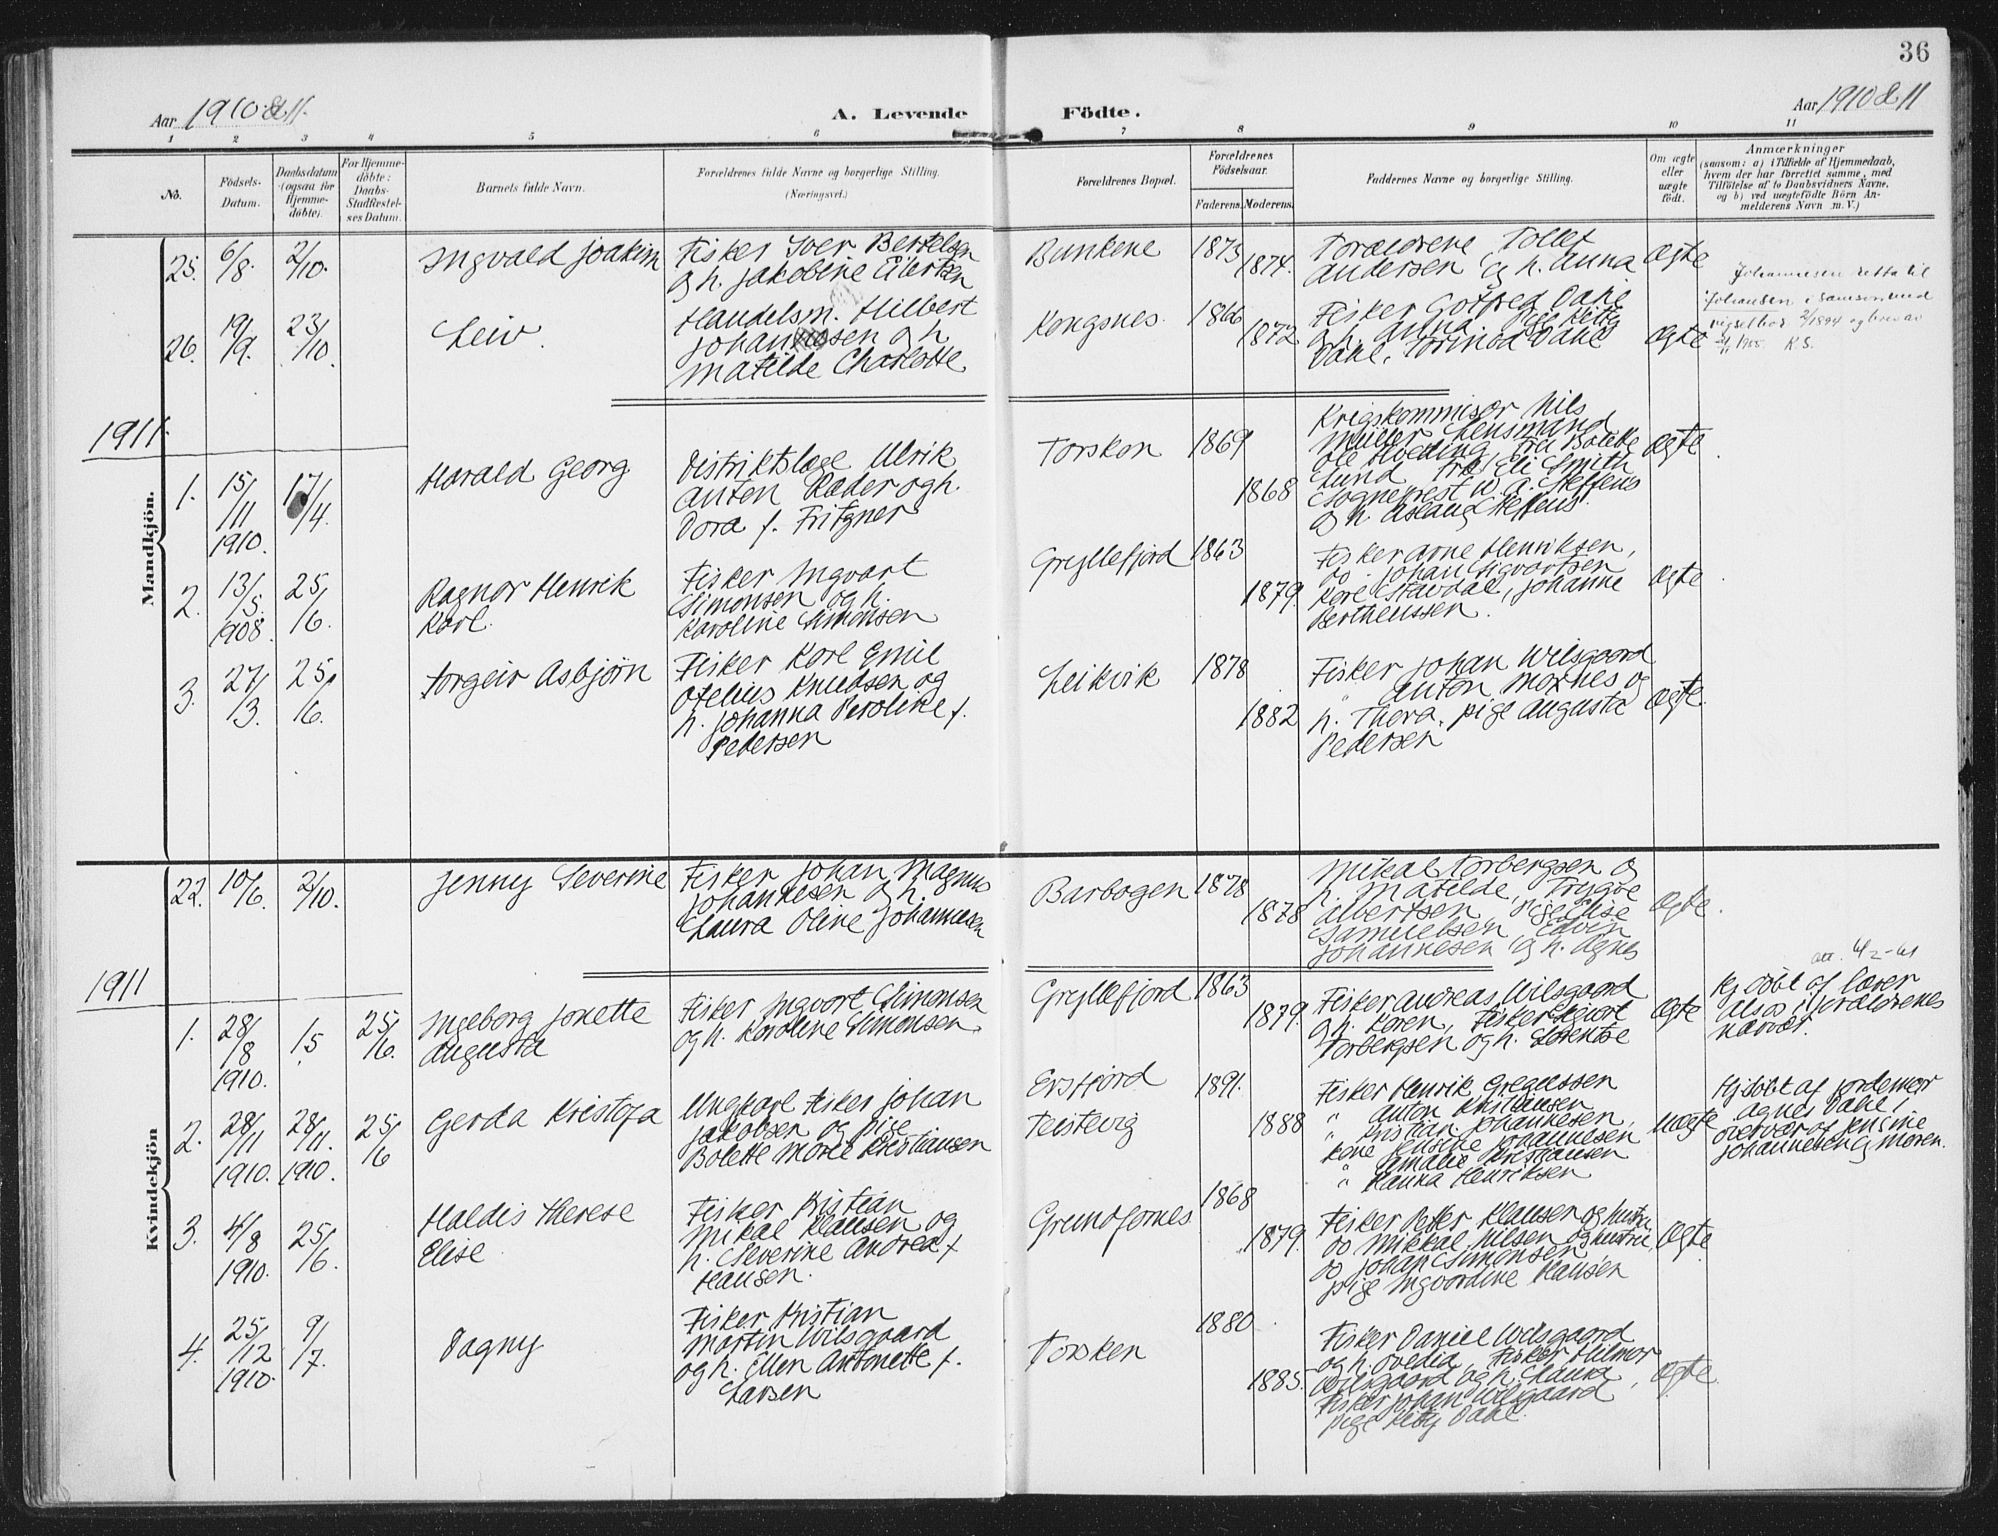 36
Aar 1910 & 11.
A. Levende Födte.
Aar 1910 & 11
1 2 3 4 5 6 7 8 9 10 11
No.
Födsels-Datum.
Daabsdatum (ogsaa for Hjemme-döbte).
For Hjemme-döbte: Daabs-Stadfæstel-ses Datum.
Barnets fulde Navn.
Forældrenes fulde Navne og borgerlige Stilling. (Næringsvei.)
Forældrenes Bopæl.
Forældrenes Födselsaar.
Faderens. Moderens.
Faddernes Navne og borgerlige Stilling.
Om ægte eller uægte födt.
Anmærkninger
(saasom: a) i Tilfælde af Hjemmedaab,
hvem der har forrettet samme, med
Tilföielse af to Daabsvidners Navne,
og b) ved uægtefödte Börn An-
melderens Navn m. V.)
Mandkjön.
25. 6/8. 2/10. Ingvald Joakim
Fisker Iver Bertelsen
og h. Jakobine Eilertsen
Bunkene 1873 1874.
Forældrene, Tollef
Andersen og h. Anna
Ægte
26. 19/9. 23/10. Leiv.
Handelsm. Hilbert
Johannesen og h.
Matilde Charlotte
Kongsnes. 1866 1872
Fisker Gotfred Dahl
og h. Anna, Pige Kitty
Dahl, Torinod Dahl
Ægte
Johannesen retta til
Johansen i samsvar med
vigselbok 2/1894 og brev av
1955 K S.
1911.
1. 15/11 1910. 17/4. Harald Georg
Distriktslæge Ulrik
Anton Rader og h.
Dora f. Fritzner
Torsken 1869 1868
Krigskommisær Nils
Müller Lensmand
Ole Hveding Fru Bolette
Lund Fru Eli Smith
Sogneprest W. A. Steffens
og h. Aslaug Steffens.
Ægte
2. 13/5. 1908. 25/6. Ragnar Henrik
Karl.
Fisker Ingvart
Simonsen og h.
Karoline Simonsen
Gryllefjord 1863 1879.
Fisker Arne Henriksen,
do. Johan Sigvartsen
Kare Stavdal, Johanne
Bertheussen.
Ægte
3. 27/3. 25/6. Torgeir Asbjørn
Fisker Karl Emil
Otelius Knudsen og
h. Johanna Peroline f.
Pedersen
Leikvik 1878 1882
Fisker Johan Wilsgaard
" Anton Moxnes og
h. Thora. Pige Augusta
Pedersen
Ægte.
Kvindekjön
22. 10/6. 2/10. Jenny Severine
Fisker Johan Magnus
Johannesen og h.
Laura Oline Johannesen
Barbogen 1878 1878
Mikal Torbergsen og
h. Matilde, Trygve
Albertsen, Pige Elise
Samuelsen, Edvin
Johannesen, og h. Agnes
Ægte.
1911
1. 28/8 1910. 1/5 25/6. Ingeborg Jonette
Augusta
Fisker Ingvart Simonsen
og h. Karoline Simonsen.
Gryllefjord 1863 1879.
Fisker Andreas Wilsgaard
og h. Karen, Fisker
Torbergsen og h. Lorentse
Ægte
att. 4/2-61
Hj. døbt af lærer
i forældrenes
nærvær.
2. 28/11 1910. 28/11. 1910. 25/6 Gerda Kristofa
Ungkarl Fisker Johan
Jakobsen og Pige
Bolette Marie Kristiansen
Ersfjord 1891.
Teistevig 1888
Fisker Henrik Gregussen
" Anton Kristiansen
" Kristian Johannesen,
Kone Jensine Johannesen
" Amalie Kristiansen
" Hanna Henriksen
Uægte
Hj. døbt af jordemor
Agnes Dahl i
overvær af Jensine
Johannesen og Moren.
3. 4/8 1910. 25/6. Haldis Therese
Elise
Fisker Kristian
Mikal Klausen og
h. Severine Andrea f.
Hansen.
Grundfarnes 1868 1879.
Fisker Peder Klausen og hustru
do Mikkal Nilsen og hustru
do Johan Simonsen,
pige Ingvardine Hansen
Ægte
4. 25/12 1910. 9/7. Dagny
Fisker Kristian
Martin Wilsgaard
og h. Ellen Antonette f.
Larsen
Torsken 1880 1885.
Fisker Daniel Wilsgaard
og h. Ovedia, Fisker Hilmar
Wilsgaard og h. Laura,
Fisker Johan Wilsgaard
pige Kitty Dahl.
Ægte.